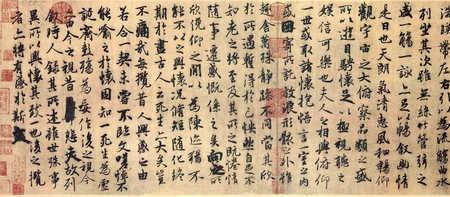 湍暎帶左右引以為流觴曲水
列坐其次雖無絲竹管弦之
盛一觴一詠亦足以暢敘幽情
是日也天朗氣清惠風和暢仰
觀宇宙之大俯察品類之盛
所以遊目騁懷足以極視聽之
娛信可樂也夫人之相與俯仰
一世或取諸懷抱悟言一室之內
或因寄所託放浪形骸之外雖
趣舍萬殊靜躁不同當其欣
於所遇蹔得於己怏然自足不
知老之將至及其所之既惓情
隨事遷感慨係之矣向之所
欣俛仰之閒以為陳迹猶不
能不以之興懷況脩短隨化終
期於盡古人云死生亦大矣豈
不痛哉每攬昔人興感之由
若合一契未嘗不臨文嗟悼不
能喻之於懷固知一死生為虛
誕齊彭殤為妄作後之視今
亦由今之視昔悲夫故列
敘時人錄其所述雖世殊事
異所以興懷其致一也後之攬
者亦將有感於斯文